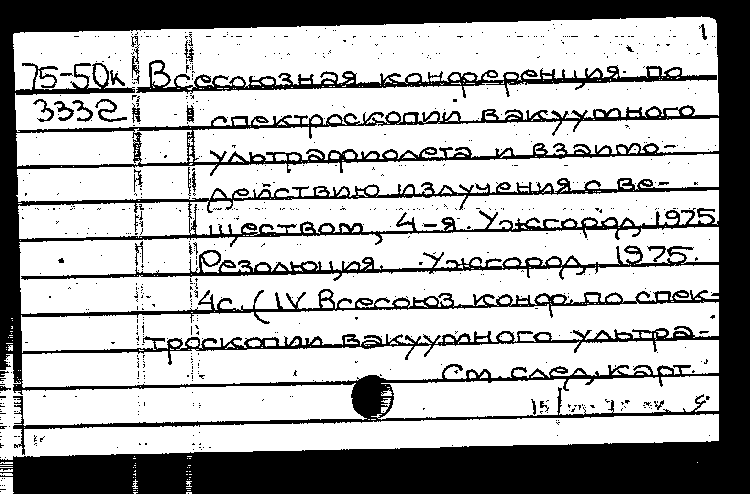 1
75-50к Всесоюзная конференция по
3332 спектроскопии вакуумного
ультрафиолета и взаимо-
действию излучения с ве-
ществом, 4-я. Ужгород, 1975.
Резолюция. Ужгород, 1975.
4с. (IV Всесоюз. конф. по спек-
троскопии вакуумного ультра-
См. след. карт.
15